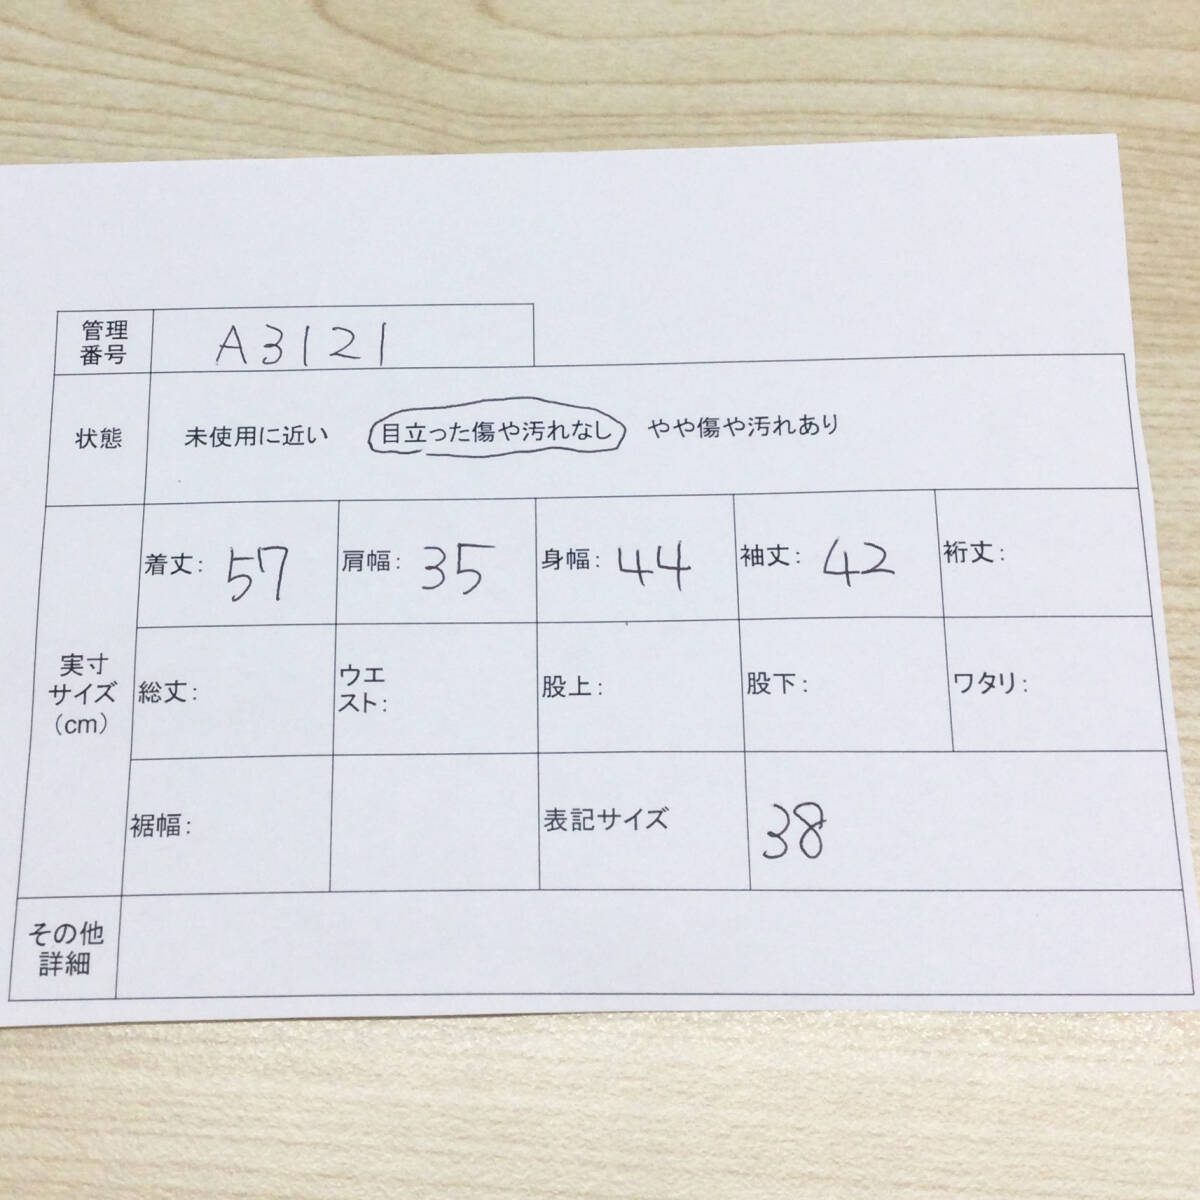 管理
番号
A3121
状態
未使用に近い 目立った傷や汚れなし やや傷や汚れあり
実寸
サイズ
(cm)
着丈: 57
肩幅: 35
身幅: 44
袖丈: 42
裄丈:
総丈:
ウエ
スト:
股上:
股下:
ワタリ:
裾幅:
表記サイズ
38
その他
詳細